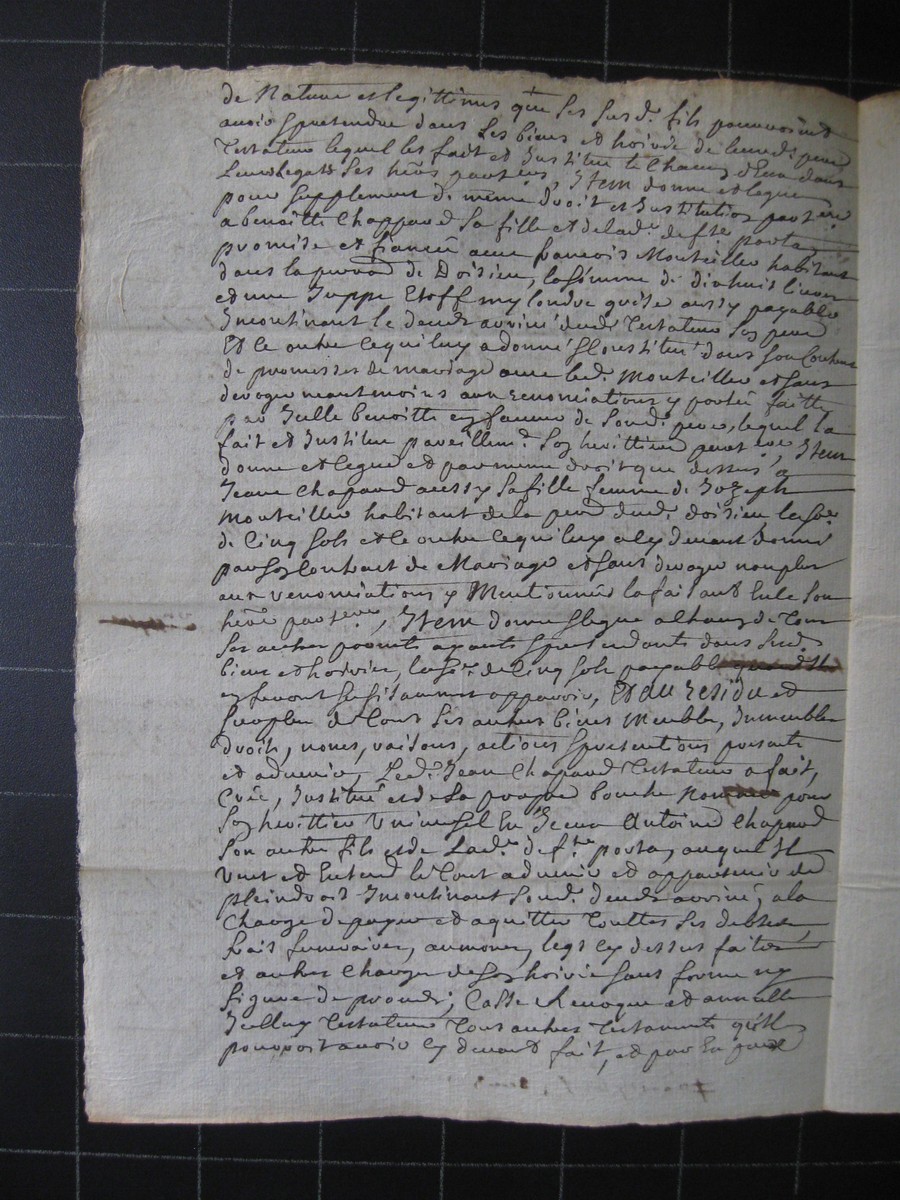 de Nature et legittimes que ses susd. fils pouvoient
avoir & pretendre dans ses biens et hoirie de leurd. pere
Testateur lequel les fait et Institue le Chacun d'Eux dans
Leurs Legats ses hers parters, Item donne et legue
pour supplement de meme droit et Institution partere
a benoitte Chappard sa fille et de lad. deffte porta
promise et fiancée avec francois Monteiller habitant
dans la parroé de Doisieu, la somme de dixhuit livres
et une Juppe Etoffe my londre grise aussy payable
Incontinant le deceds arrivé dud. Testateur Son pere
Et ce outre ce qu'il luy a donné & Constitué dans son Contract
de promesses de mariage avec led. Monteiller et sans
deroger neantmoins aux renonciations y portée faitte
par Icelle benoitte en faveur de Sond. pere, lequel la
fait et Institue pareillemt. Son herittiere partere, Item
donne et legue et par meme droit que dessus a
Jeane Chapard aussy sa fille femme de Jozeph
Monteiller habitant de la parroé dud. doisieu la Soe.
de Cinq sols et ce outre ce qu'il luy a cy devant donné
par son Contract de Mariage et sans deroger non plus
aux renonciations y Mentionnées la faisant Icelle son
here partere, Item donne & legue a chacun de Tous
Ses autres parents ayants & pretendants dans Sesd.
biens et hoirie, la Soe. de Cinq sols payable
en faisant & s'il aurait apparoir, Et du Residu et
surplus de Tous Ses autres biens Meubles, Immeubles
droits, noms, raisons, actions & pretentions presents
et advenir, Led. Jean Chapard Testateur a fait,
Créé, Institué et de Sa propre bouche Nommé pour
Son herittier Universel Le Jean Antoine Chapard
Son autre fils et de Lad. deffte porta, auquel Il
Veut et Entend le Tout advenir et appartenir de
plein droit Incontinant Sond. deceds arrivé, a la
Charge de payer et aquitter Touttes Ses debtes,
frais funeraires, aumones, legs cy dessus faites
et autres Charges de son hoirie sans forme ny
figure de procés; Casse Revoque et annulle
Icelluy Testateur Tous autres Testaments qu'il
pourroit avoir cy devant fait, et par